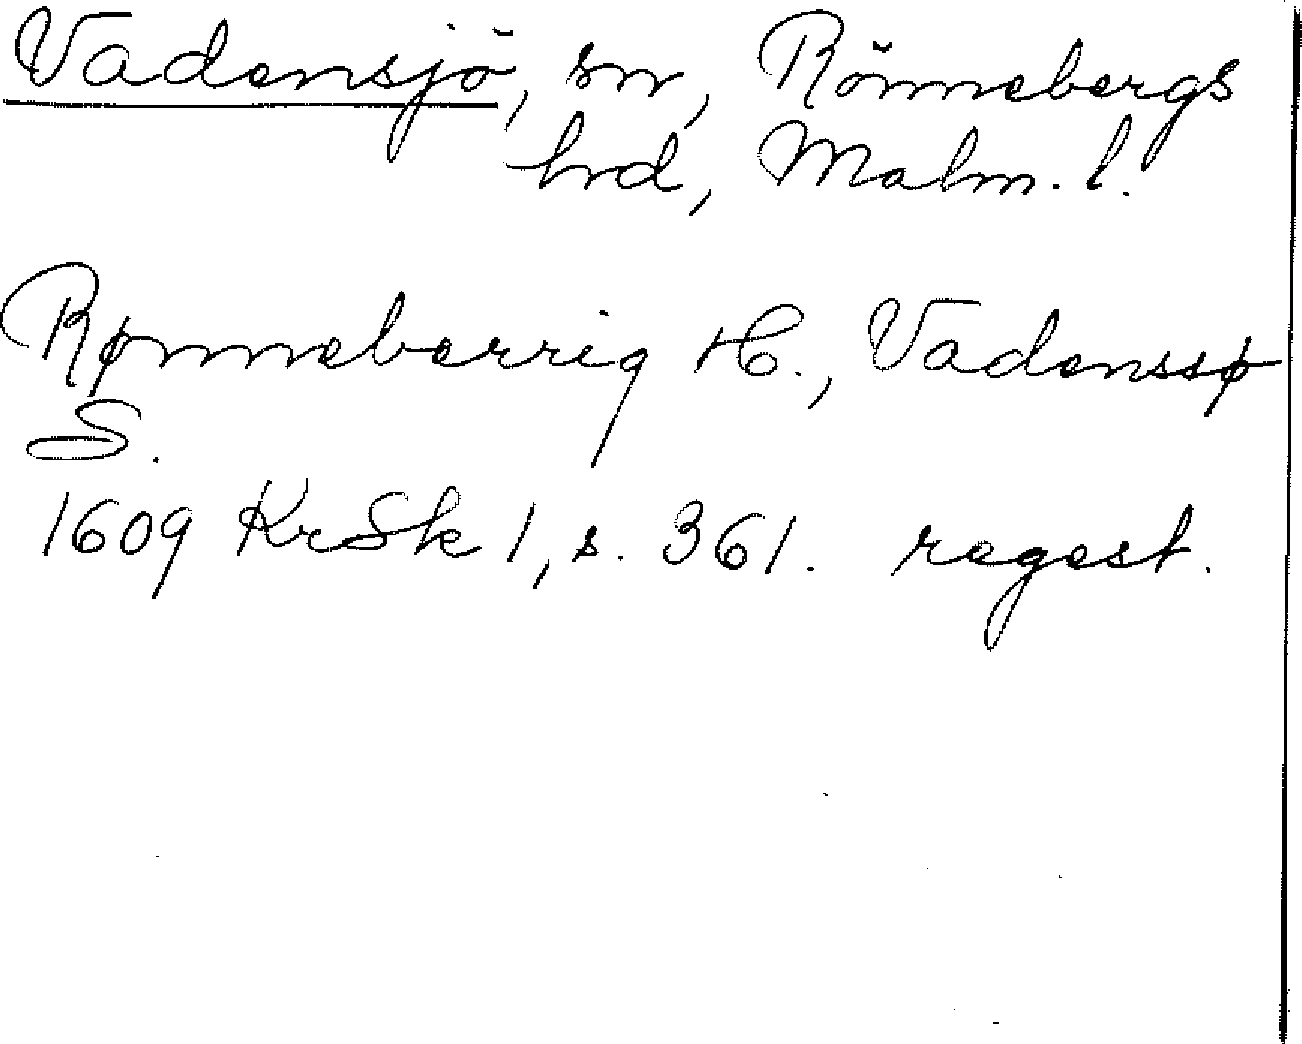 Vadensjö, sn, Rönnebergs
hrd, Malm. l.
Rønneberrig H., Vadenssø
S.
1609 KrSk 1, s. 361. regest.